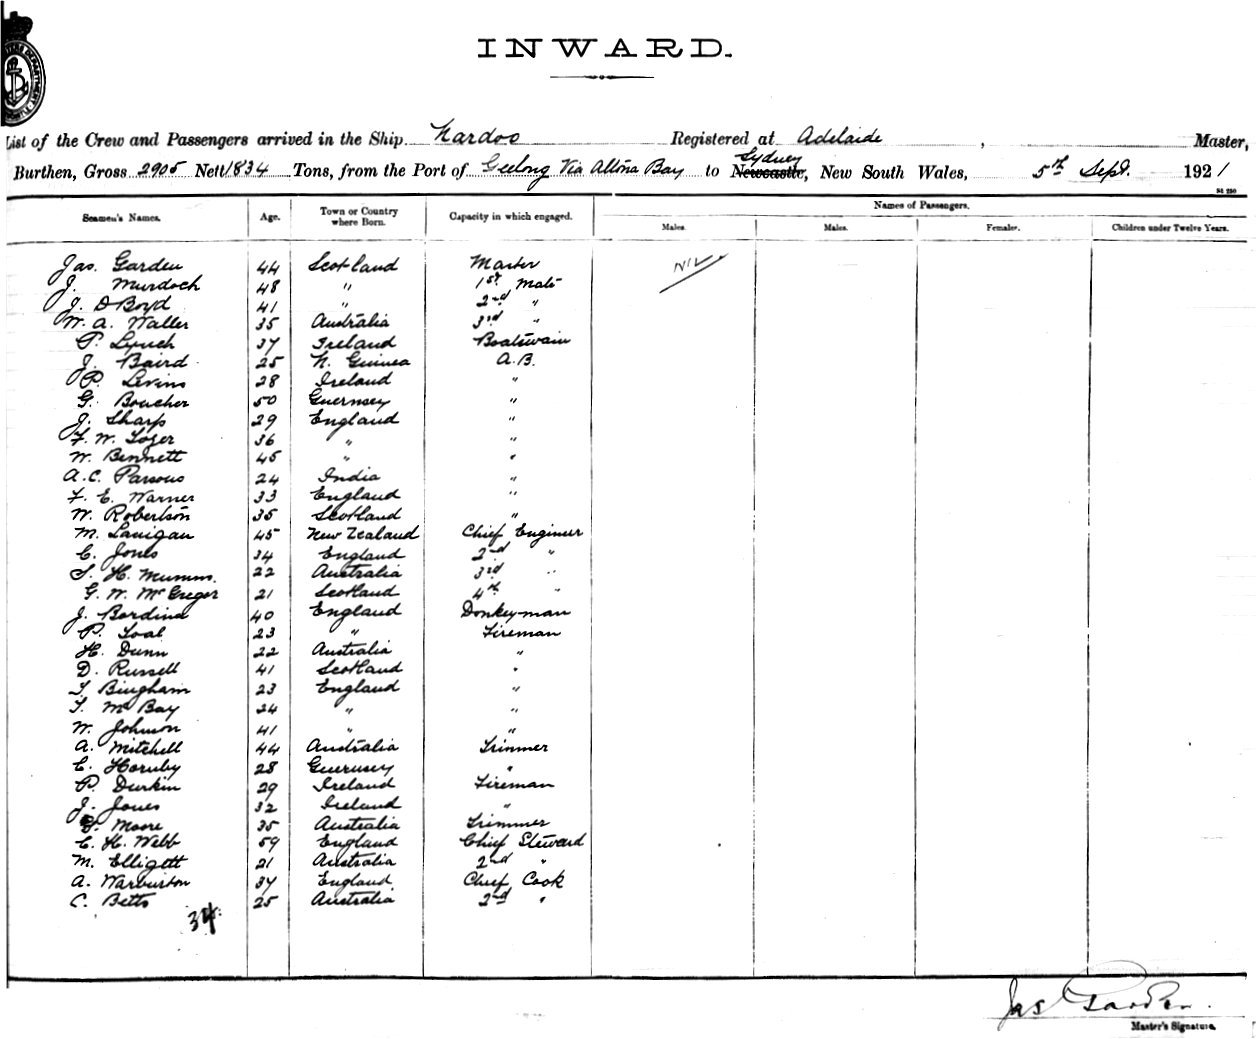 INWARD.
List of the Crew and Passengers arrived in the Ship Nardoo Registered at Adelaide , Master,
Burthen, Gross 2905 Nett 1834 Tons, from the Port of Geelong Via Altona Bay to Newcastle Sydney, New South Wales, 5th Sept. 1921
Seamen's Names. Age. Town or Country where Born. Capacity in which engaged. Names of Passengers.
Males. Males. Females. Children under Twelve Years.
Jas. Garden 44 Scotland Master NIL
J. Murdoch 48 " 1st Mate
J. D Boyd 41 " 2nd "
W. A. Waller 35 Australia 3rd "
P. Lynch 37 Ireland Boatswain
J. Baird 25 N. Guinea A.B.
P. Levins 28 Ireland "
G. Boucher 50 Guernsey "
J. Sharp 29 England "
F. W. Tozer 36 " "
W. Bennett 45 " "
A. C. Parsons 24 India "
F. E. Warner 33 England "
W. Robertson 35 Scotland "
M. Lanigan 45 New Zealand Chief Engineer
C. Jones 34 England 2nd "
S. H. Mumms. 22 Australia 3rd "
G. W. McGregor 21 Scotland 4th "
J. Bordina 40 England Donkeyman
P. Toal 23 " Fireman
H. Dunn 22 Australia "
D. Russell 41 Scotland "
T. Bingham 23 England "
T. McBay 24 " "
W. Johnson 41 " "
A. Mitchell 44 Australia Trimmer
C. Hornby 28 Guernsey "
P. Durkin 29 Ireland Fireman
J. Jones 32 Ireland "
Moore 35 Australia Trimmer
C. H. Webb 59 England Chief Steward
M. Elligett 21 Australia 2nd "
A. Warburton 37 England Chief Cook
C. Betts 25 Australia 2nd "
34
Jas Garden.
Master's Signature.